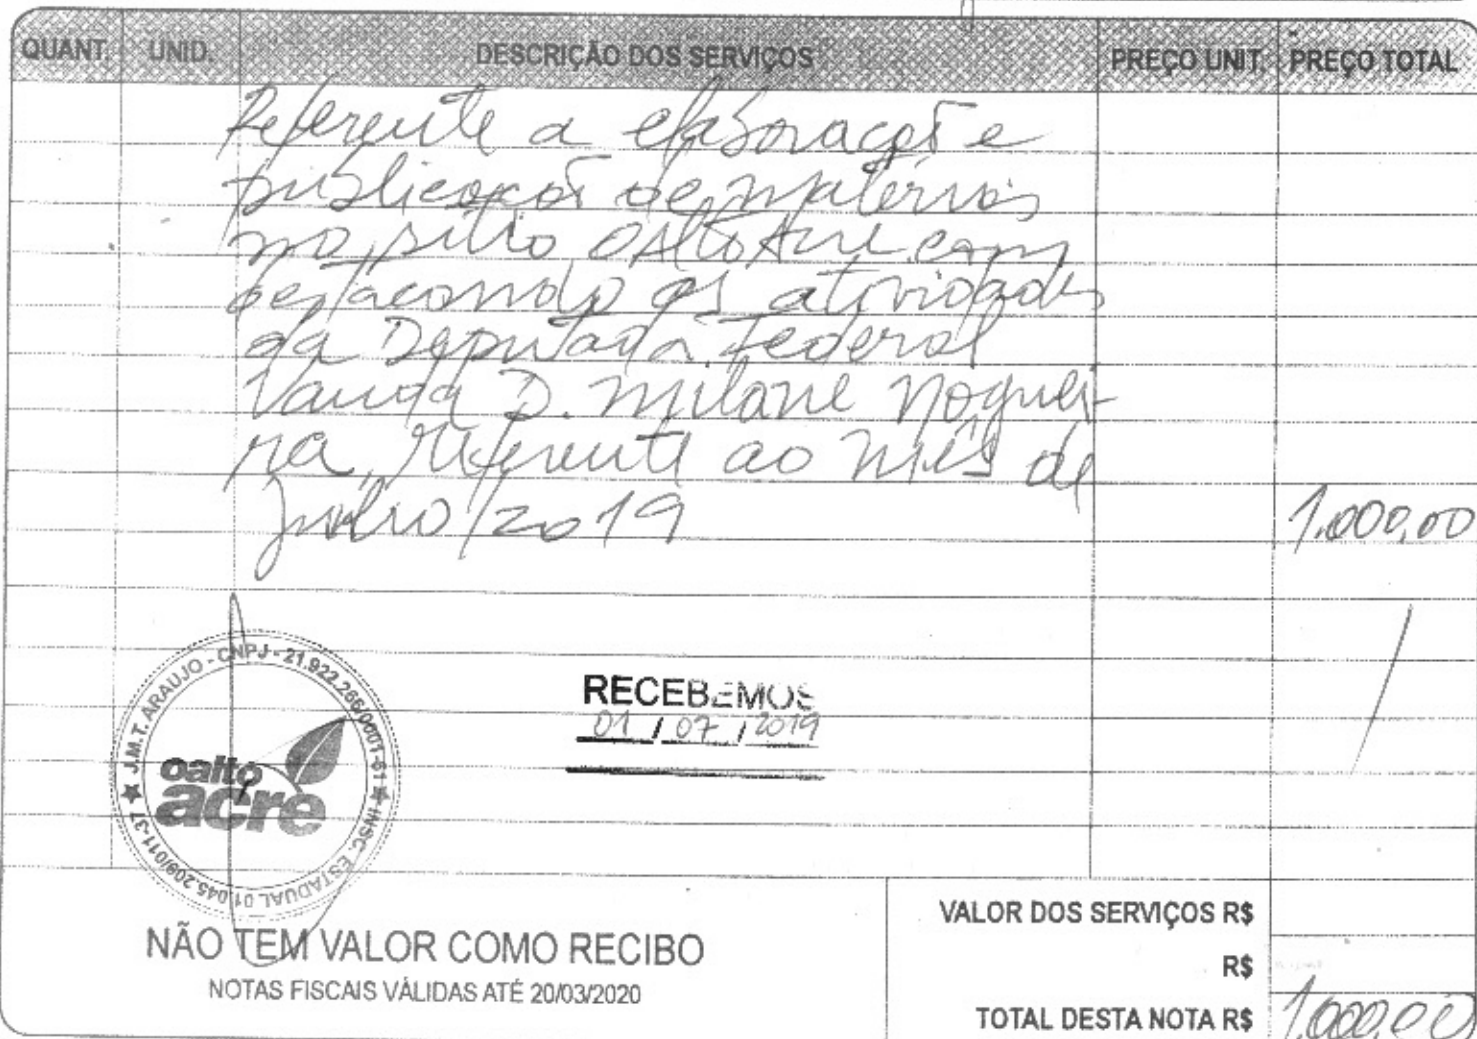 QUANT. UNID. DESCRIÇÃO DOS SERVIÇOS PREÇO UNIT. PREÇO TOTAL
Referente a elaboração e
publicação de matérias
no sitio oaltoacre.com
destacando as atividades
da Deputada Federal
Vanda D. Milani Noguei-
ra, referente ao mês de
julho/2019 1.000,00
J.M.T. ARAUJO - CNPJ - 21.922.266/0001-61 ★ INSC. ESTADUAL 01.045.209/011-37 ★
oalto
acre
RECEBEMOS
01 / 07 / 2019
NÃO TEM VALOR COMO RECIBO
NOTAS FISCAIS VÁLIDAS ATÉ 20/03/2020
VALOR DOS SERVIÇOS R$
R$
TOTAL DESTA NOTA R$ 1.000,00